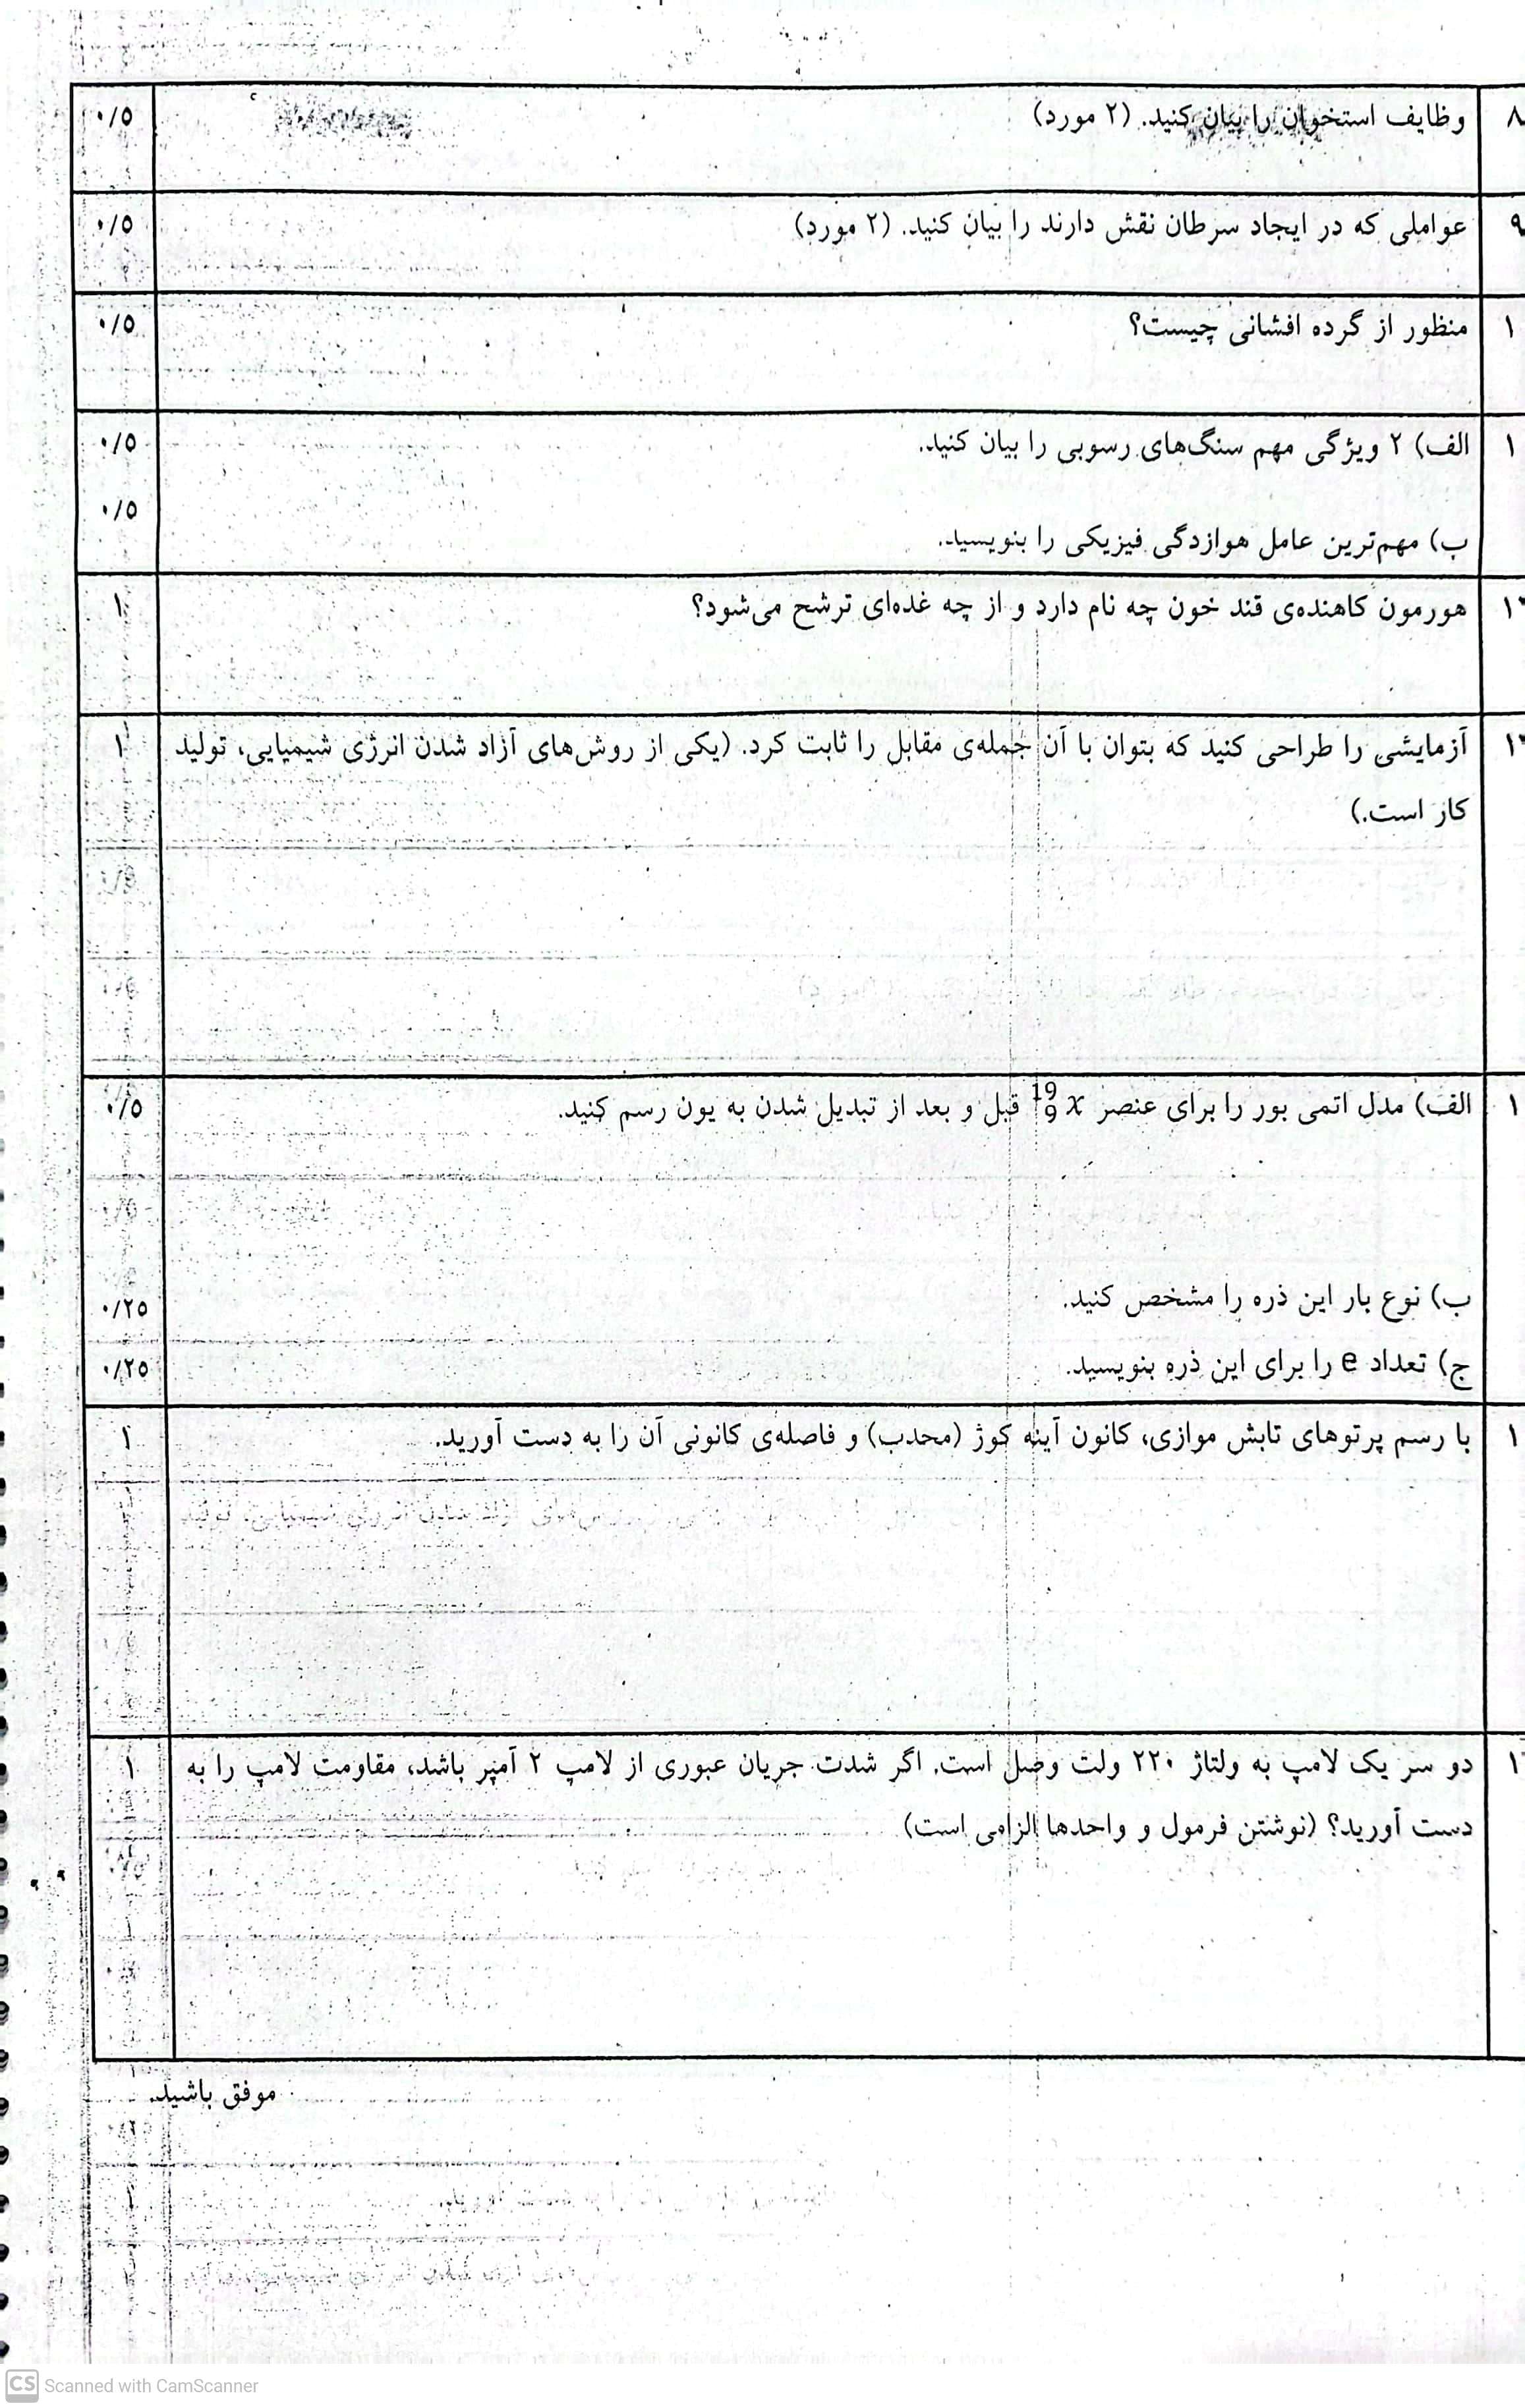 ۸ وظایف استخوان را بیان کنید. (۲ مورد) ۰/۵
۹ عواملی که در ایجاد سرطان نقش دارند را بیان کنید. (۲ مورد) ۰/۵
۱ منظور از گرده افشانی چیست؟ ۰/۵
۱ الف) ۲ ویژگی مهم سنگ‌های رسوبی را بیان کنید. ۰/۵
ب) مهم‌ترین عامل هوازدگی فیزیکی را بنویسید. ۰/۵
۱ هورمون کاهنده‌ی قند خون چه نام دارد و از چه غده‌ای ترشح می‌شود؟ ۱
۱ آزمایشی را طراحی کنید که بتوان با آن جمله‌ی مقابل را ثابت کرد. (یکی از روش‌های آزاد شدن انرژی شیمیایی، تولید ۱
کار است.)
۱ الف) مدل اتمی بور را برای عنصر ¹⁹₉x قبل و بعد از تبدیل شدن به یون رسم کنید. ۰/۵
ب) نوع بار این ذره را مشخص کنید. ۰/۲۵
ج) تعداد e را برای این ذره بنویسید. ۰/۲۵
۱ با رسم پرتوهای تابش موازی، کانون آینه کوژ (محدب) و فاصله‌ی کانونی آن را به دست آورید. ۱
۱ دو سر یک لامپ به ولتاژ ۲۲۰ ولت وصل است. اگر شدت جریان عبوری از لامپ ۲ آمپر باشد، مقاومت لامپ را به ۱
دست آورید؟ (نوشتن فرمول و واحدها الزامی است)
موفق باشید.
CS Scanned with CamScanner